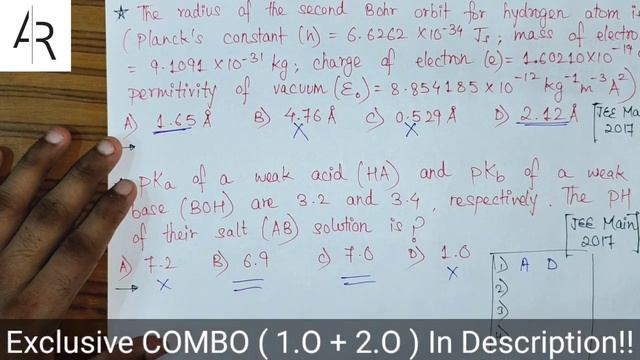 AR
☆ The radius of the second Bohr orbit for hydrogen atom is
(Planck's constant (h) = 6.6262 ×10⁻³⁴ Js; mass of electro
= 9.1091 ×10⁻³¹ kg; charge of electron (e) = 1.60210×10⁻¹⁹
permitivity of vacuum (ε₀) = 8.854185×10⁻¹² kg⁻¹m⁻³A²)
A) 1.65 Å B) 4.76 Å C) 0.529 Å D) 2.12 Å [JEE Mai
2017
pKa of a weak acid (HA) and pKb of a weak
base (BOH) are 3.2 and 3.4, respectively. The PH
of their salt (AB) solution is?
[JEE Main
2017
A) 7.2 B) 6.9 C) 7.0 D) 1.0
1) A D
2)
3)
Exclusive COMBO ( 1.O + 2.O ) In Description!!